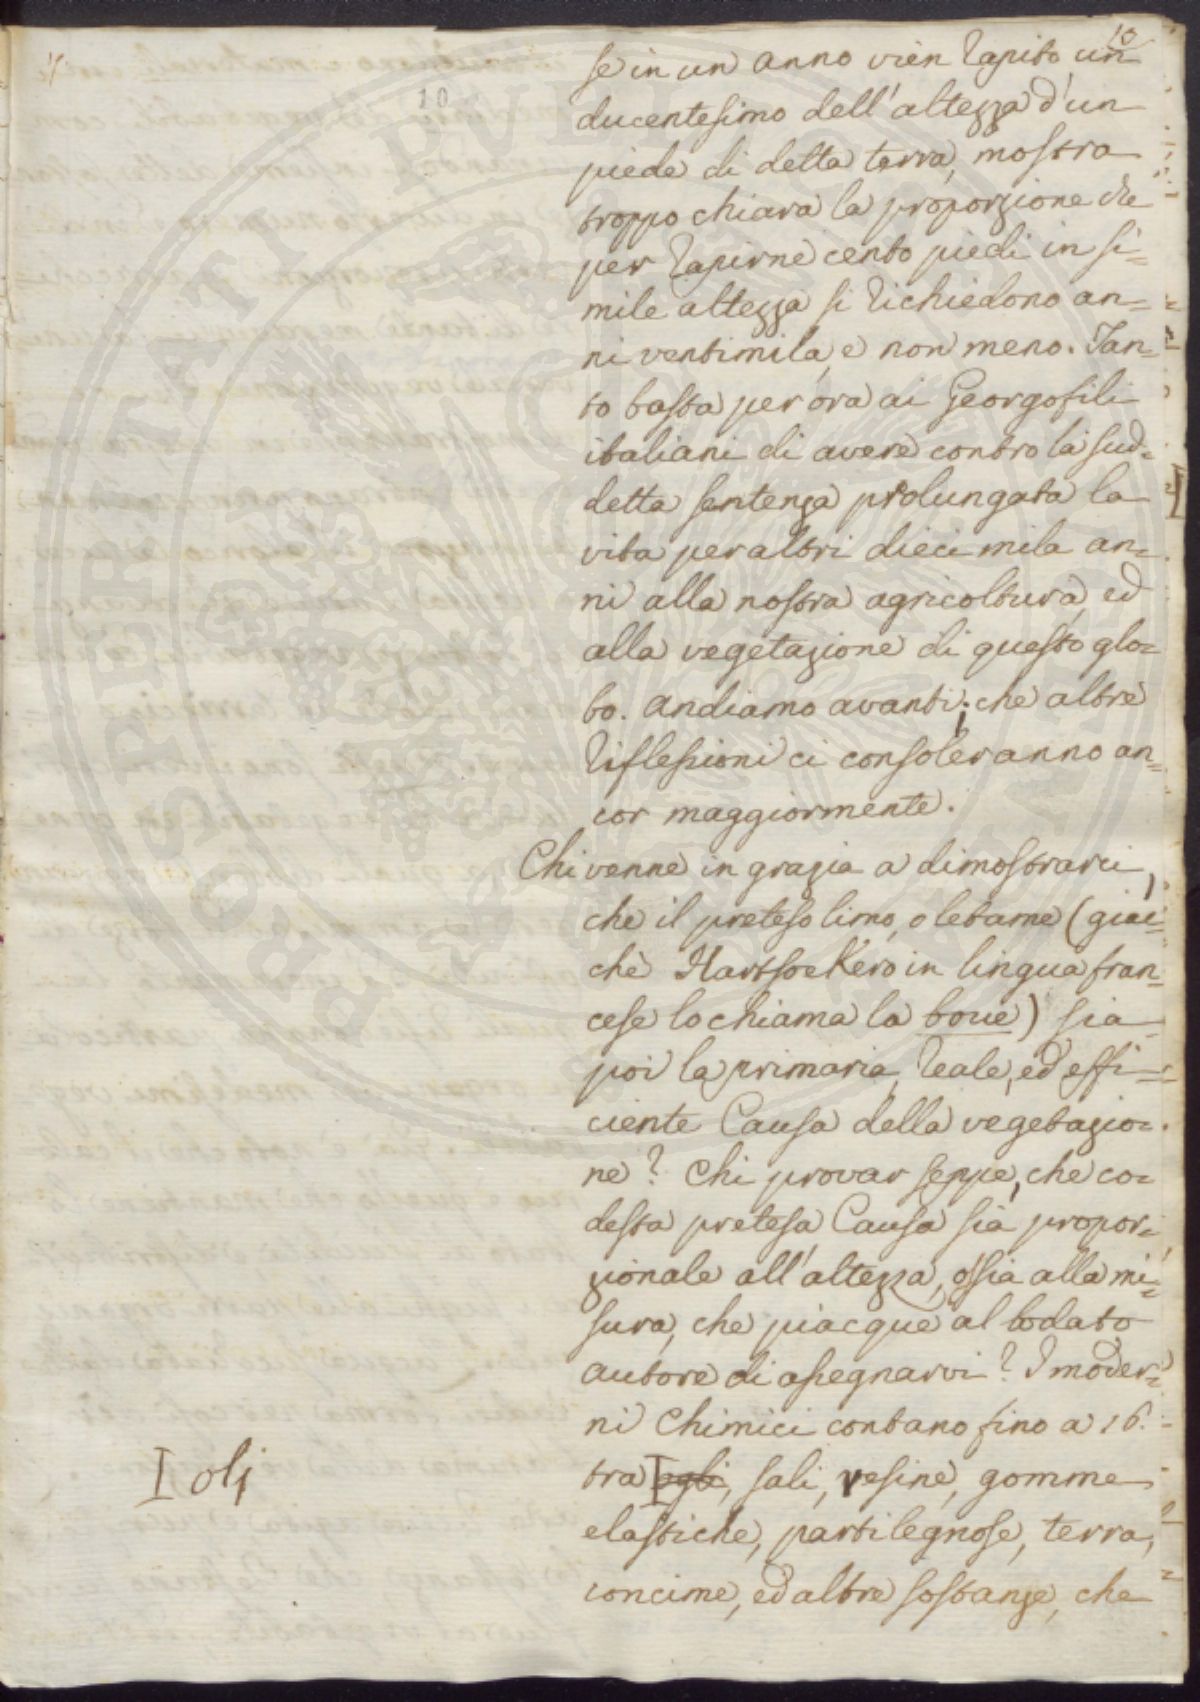 10
10
se in un anno vien rapito un
ducentesimo dell'altezza d'un
piede di detta terra, mostra
troppo chiara la proporzione che
per rapirne cento piedi in si=
mile altezza si richiedono an=
ni ventimila, e non meno. Tan=
to basta per ora ai Georgofili
italiani di avere contro la sud=
detta sentenza prolungata la
vita per altri dieci mila an=
ni alla nostra agricoltura, ed
alla vegetazione di questo glo=
bo. Andiamo avanti; che altre
riflessioni ci consoleranno an=
cor maggiormente.
Chi venne in grazia a dimostrarci,
che il preteso limo, o letame (giac=
chè Hartsoekero in lingua fran=
cese lo chiama la boue) sia
poi la primaria, reale, ed effi=
ciente Causa della vegetazio=
ne? Chi provar seppe, che co=
desta pretesa Causa sia propor=
zionale all'altezza, ossia alla mi=
sura, che piacque al lodato
autore di assegnarvi? I moder=
ni Chimici contano fino a 16.
tra ogli, sali, resine, gomme
olj
elastiche, parti legnose, terra,
concime, ed altre sostanze, che
PROSPERITATI PVBLICAE